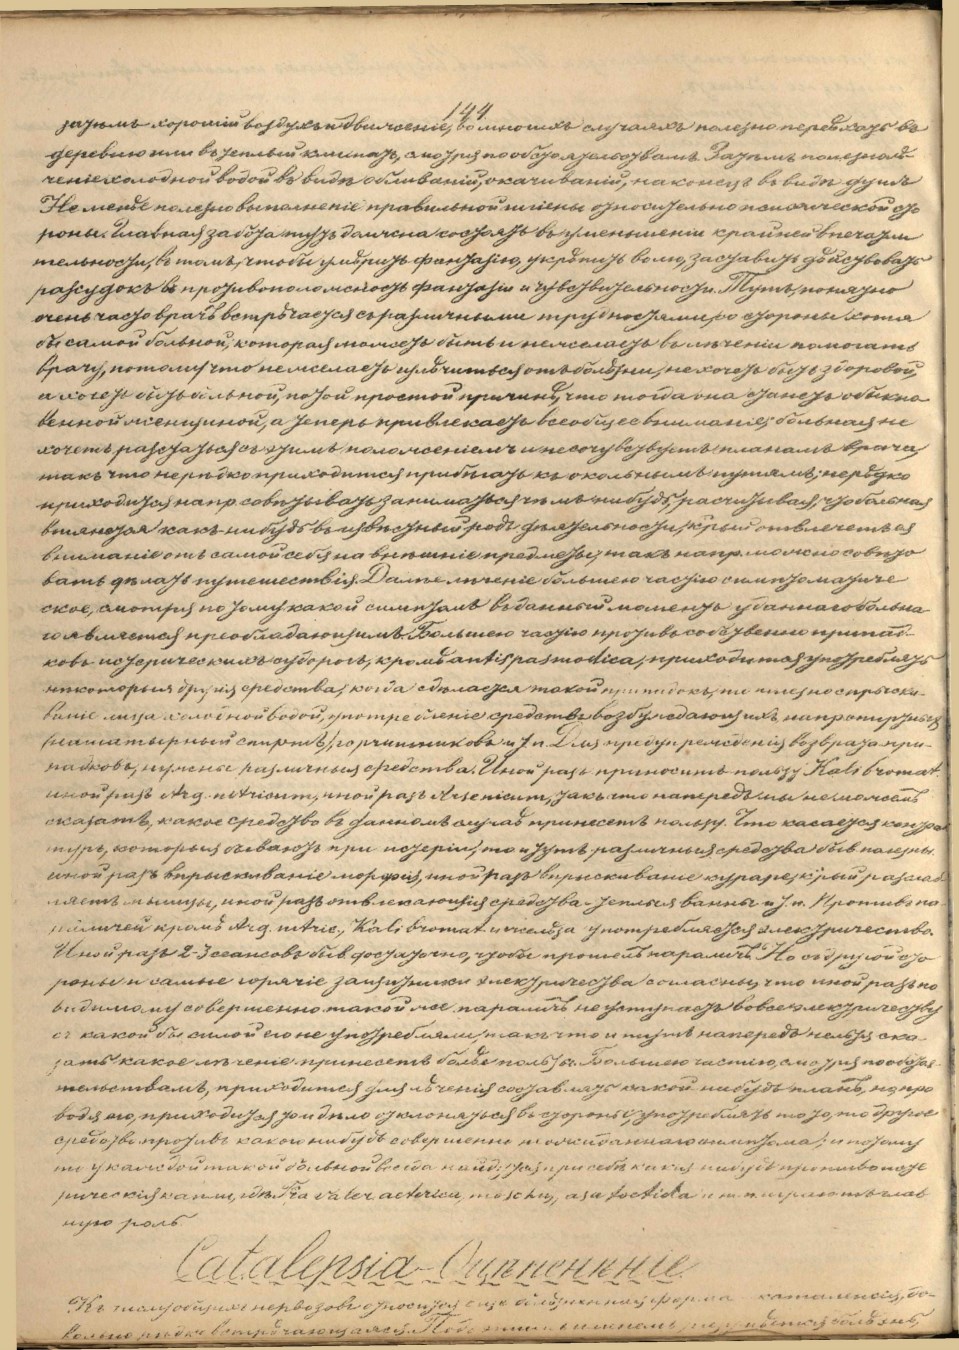 144
затѣмъ хорошій воздухъ и движеніе, во многихъ случаяхъ полезно переѣхать въ
деревню или въ теплый климатъ, смотря по обстоятельствамъ. Затѣмъ полезно лѣ-
ченіе холодной водой въ видѣ обливаній, окачиваній, наконецъ въ видѣ душъ
Не менѣе полезно выполненіе правильной гигіены относительно психической сто
роны. Главная забота тутъ должна состоять въ уменьшеніи крайней впечатли
тельности, въ томъ, чтобы умѣрить фантазію, укрѣпить волю, заставить дѣйствовать
разсудокъ въ противоположность фантазіи и чувствительности. Тутъ, понятно
очень часто врачъ встрѣчается съ различными трудностями, со стороны хотя
бы самой больной, которая можетъ быть и не желаетъ въ лѣченіи помогать
врачу, потому что не желаетъ излѣчиться отъ болѣзни, не хочетъ быть здоровой,
а хочетъ быть больной, по той простой причинѣ, что тогда она станетъ обыкно
венной женщиной, а теперь привлекаетъ всеобщее вниманіе; больная не
хочетъ разстаться съ этимъ положеніемъ и не сочувствуетъ планамъ врача
такъ что нерѣдко приходится прибѣгать къ окольнымъ путямъ; нерѣдко
приходится напр. совѣтывать заниматься чѣмъ нибудь, расчитывая, что больная
втянется какъ нибудь въ извѣстный родъ дѣятельности, к'рый отвлечетъ ея
вниманіе отъ самой себя на внѣшніе предметы, такъ напр. можно совѣто
вать дѣлать путешествія. Далѣе лѣченіе большею частію симптоматиче
ское, смотря по тому какой симптомъ въ данный моментъ у даннаго больна
го является преобладающимъ. Большею частію противъ собственно припад-
ковъ истерическихъ судорогъ, кромѣ antispasmodica, приходится употреблять
нѣкоторыя другія средства, когда сдѣлается такой припадокъ, то полезно спрыски-
ваніе лица холодной водой, употребленіе средствъ возбуждающихъ, напр.
(нашатырный спиртъ), горчишниковъ и т.п. Для предупрежденія возврата при-
падковъ, нужны различныя средства. Иной разъ приноситъ пользу Kali bromat.
иной разъ Arg. nitricum, иной разъ Arsenicum, такъ что напередъ мы не можемъ
сказать, какое средство въ данномъ случаѣ принесетъ пользу. Что касается контрак
туръ, которыя бываютъ при истеріи, то и тутъ различныя средства быв. полезны.
иной разъ впрыскиваніе морфія, иной разъ впрыскиваніе кураре, к'рый разслаб
ляетъ мышцы, иной разъ отвлекающія средства – теплыя ванны и т.п. Противъ па-
раличей кромѣ Arg. nitric., Kali bromat. и желѣза употребляется электричество.
Иной разъ 2-3 сеансовъ быв. достаточно, чтобы прошелъ параличъ. Но съ другой сто
роны и самые горячіе защитники электричества согласны, что иной разъ по
видимому совершенно такой же параличъ не уступаетъ вовсе электричеству
съ какой бы силой его не употребляли, такъ что и тутъ напередъ нельзя ска-
зать какое лѣченіе принесетъ болѣе пользы. Большею частію, смотря по обстоя-
тельствамъ, приходится для лѣченія составлять какой нибудь планъ, но, про
водя его, приходится то и дѣло отклоняться въ стороны, употреблять то то, то другое
средство противъ какого нибудь совершенно неожиданнаго симптома; и потому
то у каждой такой больной всегда найдутся при себѣ какія нибудь противоисте
рическія капли, гдѣ Tra valer. aeterica, moschus, asa foetida и т.п. играютъ глав
ную роль
Catalepsia – Оцѣпенѣніе
Къ числу общихъ неврозовъ относится еще болѣзненная форма – каталепсія, до-
вольно рѣдко встрѣчающаяся. Подъ этимъ именемъ разумѣется болѣзнь,